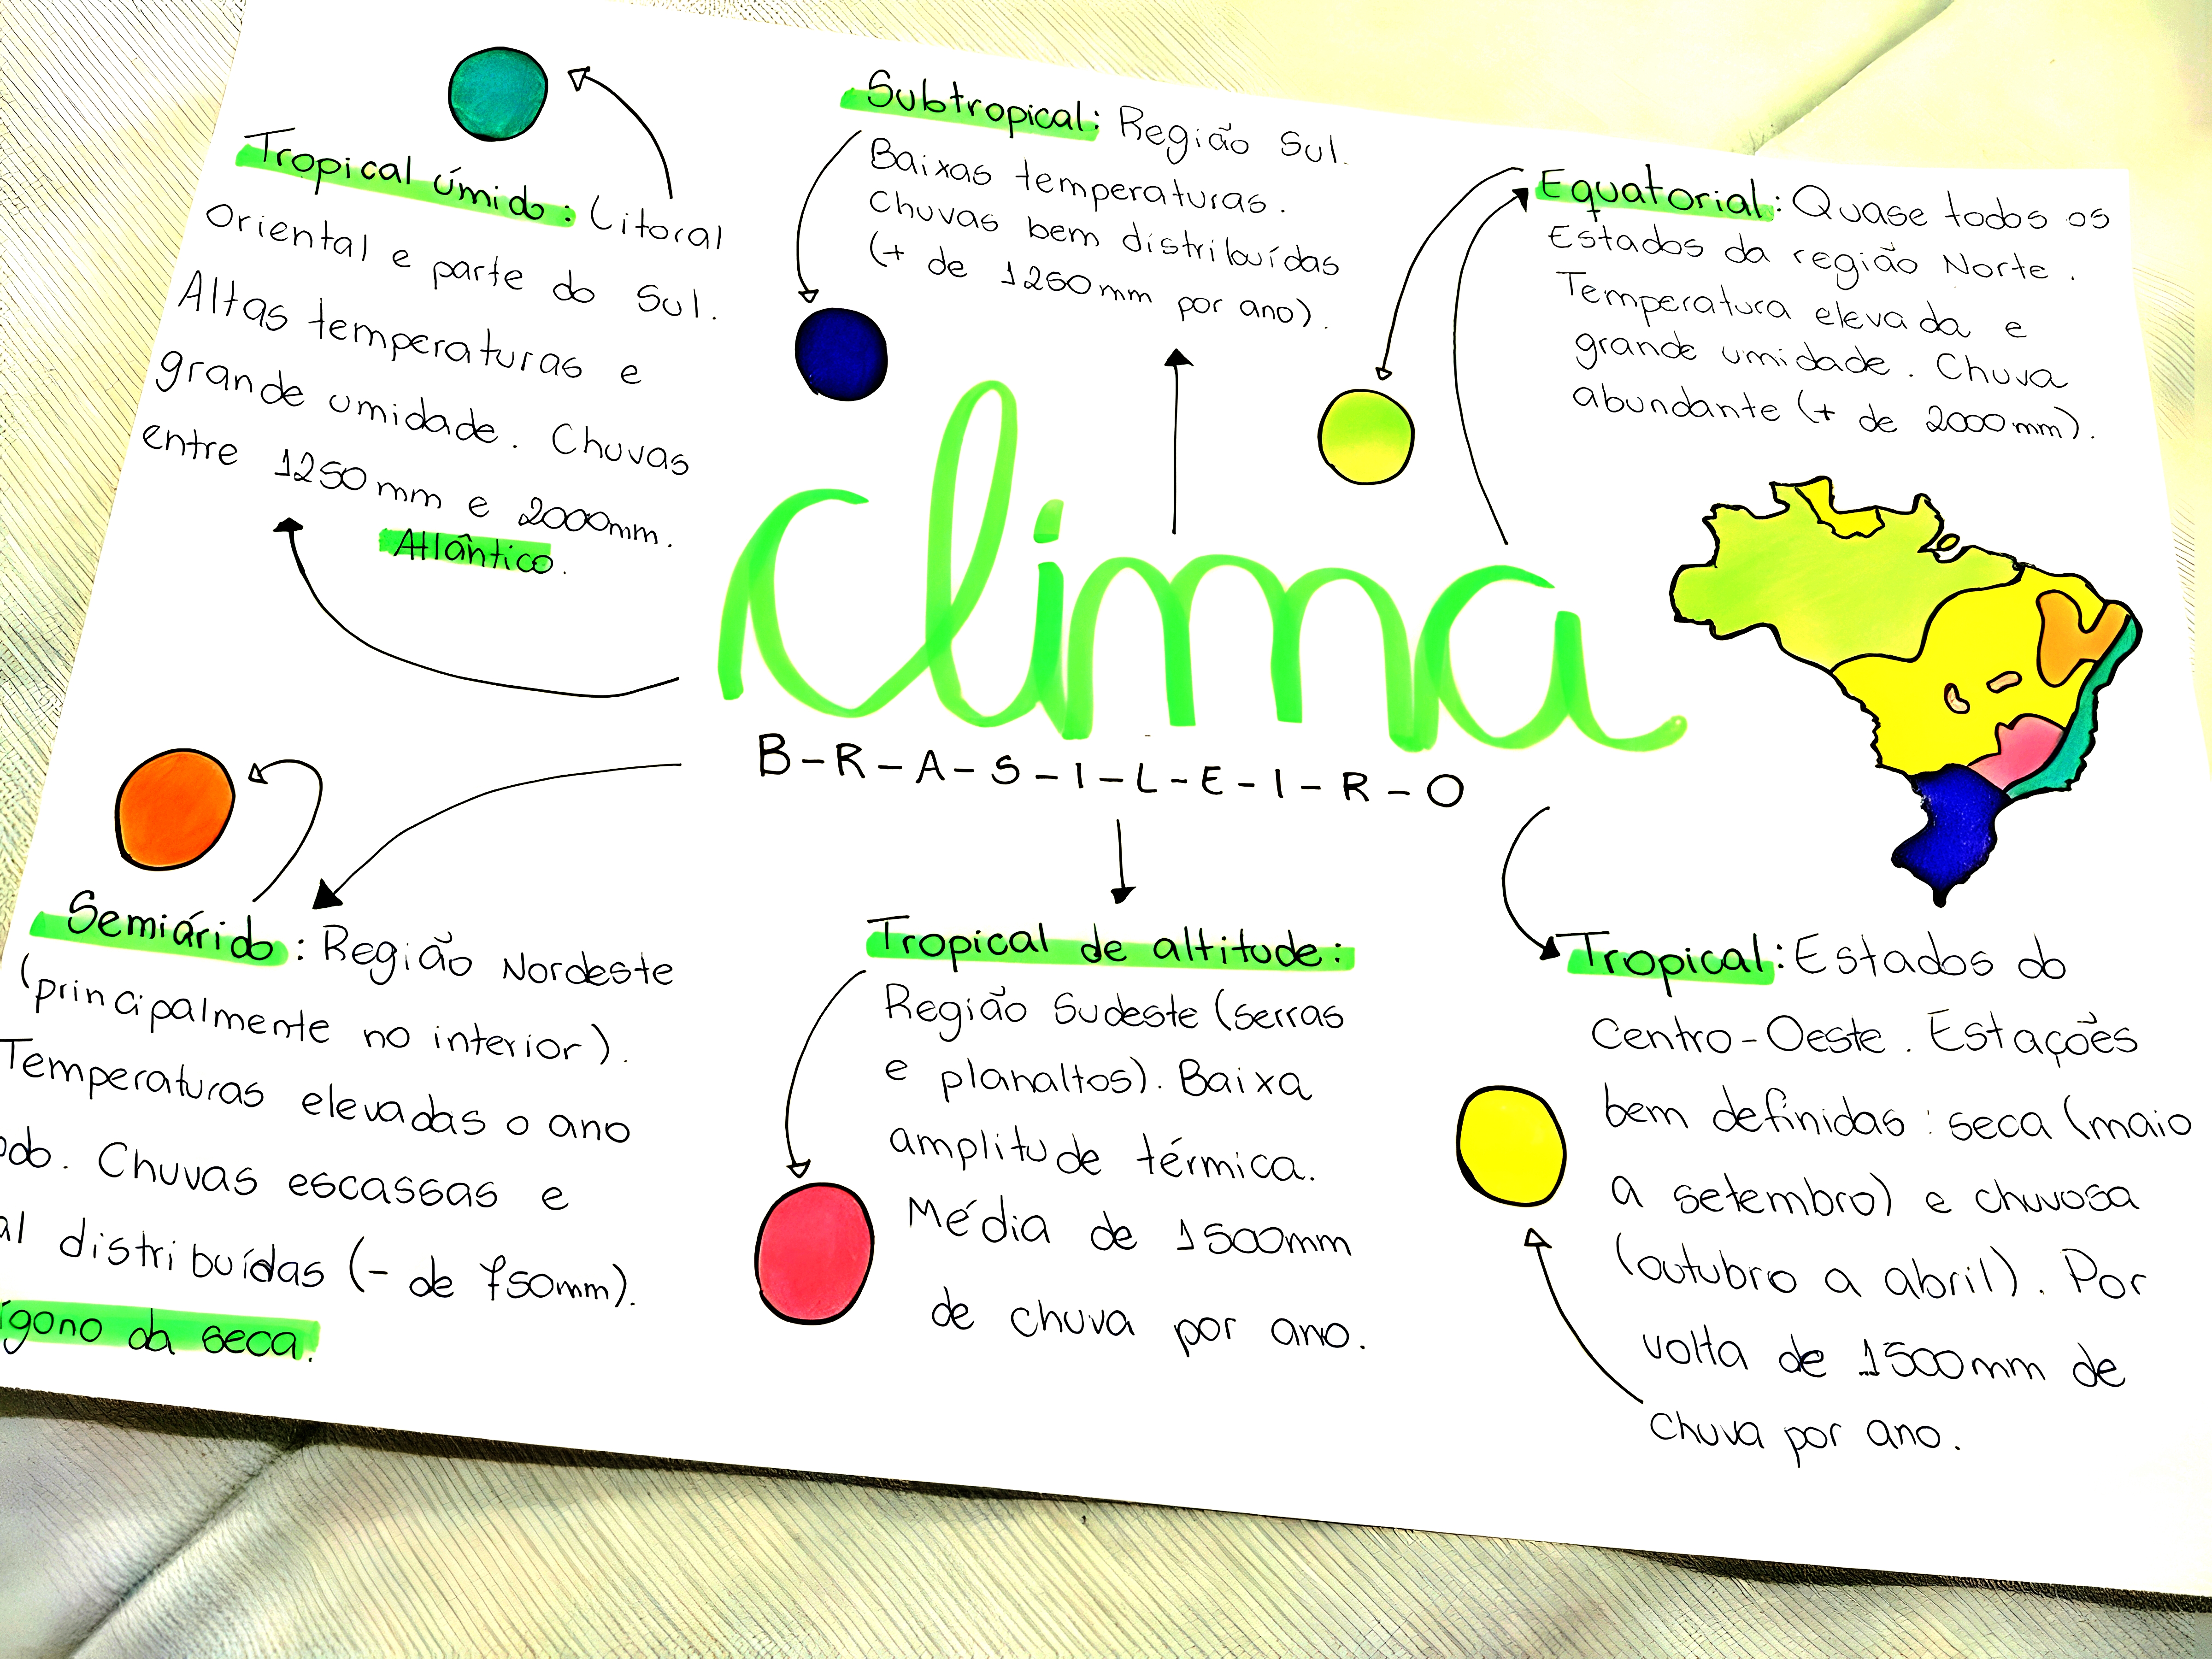 Tropical úmido: Litoral
Oriental e parte do Sul.
Altas temperaturas e
grande umidade. Chuvas
entre 1250mm e 2000mm.
Atlântico.
Subtropical: Região Sul.
Baixas temperaturas.
Chuvas bem distribuídas
(+ de 1250mm por ano).
Equatorial: Quase todos os
Estados da região Norte.
Temperatura elevada e
grande umidade. Chuva
abundante (+ de 2000mm).
Clima
B-R-A-S-I-L-E-I-R-O
Semiárido: Região Nordeste
(principalmente no interior).
Temperaturas elevadas o ano
odo. Chuvas escassas e
al distribuídas (- de 750mm).
ígono da seca.
Tropical de altitude:
Região Sudeste (serras
e planaltos). Baixa
amplitude térmica.
Média de 1500mm
de chuva por ano.
Tropical: Estados do
Centro-Oeste. Estações
bem definidas: seca (maio
a setembro) e chuvosa
(outubro a abril). Por
volta de 1500mm de
chuva por ano.